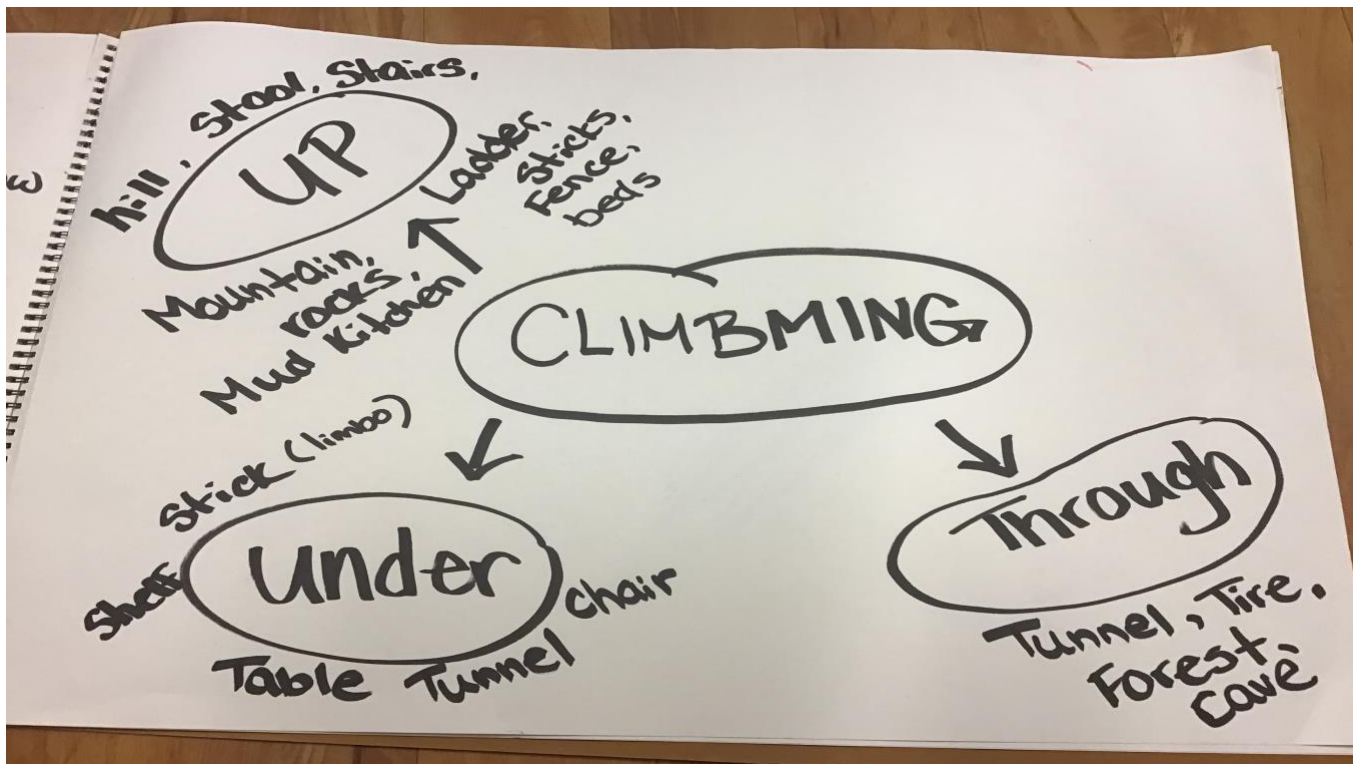 hill, Stool, Stairs,
UP
Ladder,
Sticks,
Fence,
beds
Mountain,
rocks,
Mud Kitchen
CLIMBMING
Stick (limbo)
Shelf
under
chair
Table Tunnel
Through
Tunnel, Tire,
Forest
cave